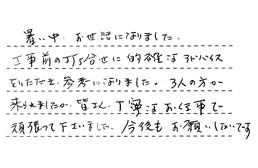 暑い中、お世話になりました。
工事前の打ち合せに的確なアドバイス
をいただき、参考になりました。3人の方が
来られましたが、皆さん、丁寧なお仕事で
頑張って下さいました。今後も お願いしたいです